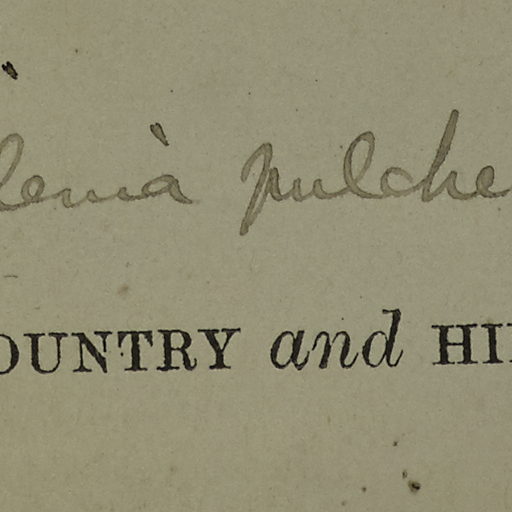 lenia pulche
OUNTRY and HI